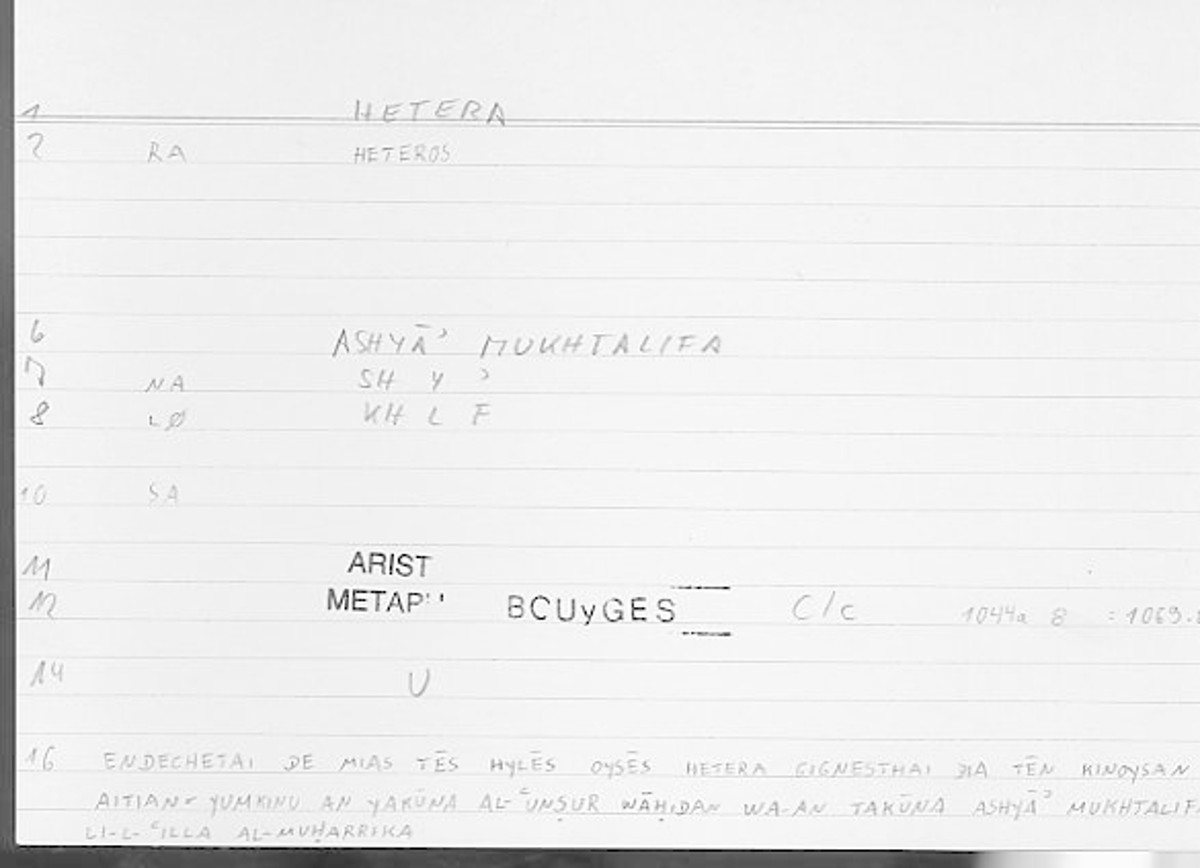 1 HETERA
2 RA HETEROS
6 ASHYĀʾ MUKHTALIFA
7 NA SH Y ʾ
8 LØ KH L F
10 SA
11 ARIST
12 METAPH BOUyGES C/c 1044a 8 : 1069.
14 U
16 ENDECHETAI DE MIAS TĒS HYLĒS OYSĒS HETERA GIGNESTHAI DIA TĒN KINOYSAN
AITIAN YUMKINU AN YAKŪNA AL-ʿUNṢUR WĀḤIDAN WA-AN TAKŪNA ASHYĀʾ MUKHTALIFA
LI-L-ʿILLA AL-MUḤARRIKA